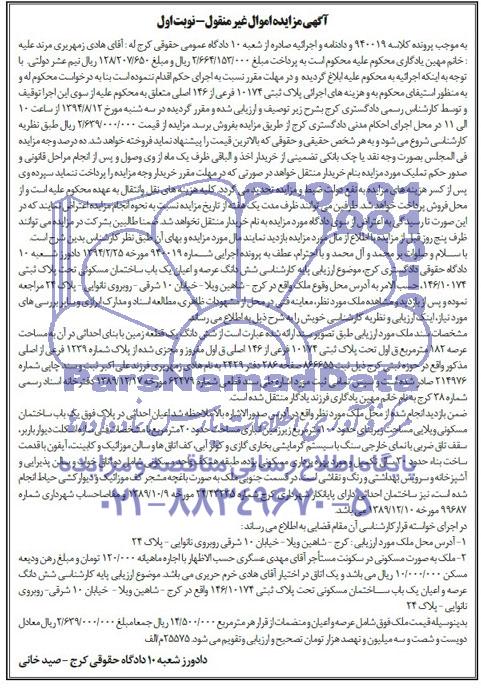 آگهی مزایده اموال غیر منقول - نوبت اول
به موجب پرونده کلاسه ۹۴۰۰۱۹ و دادنامه و اجرائیه صادره از شعبه ۱۰ دادگاه عمومی حقوقی کرج له : آقای هادی زمهریری مرند علیه
: خانم مهین یادگاری محکوم علیه محکوم است به پرداخت مبلغ ۲/۶۶۴/۱۵۲/۰۰۰ ریال و مبلغ ۱۲۸/۲۰۷/۶۵۰ ریال نیم عشر دولتی. با
توجه به اینکه اجرائیه به محکوم علیه ابلاغ گردیده و در مهلت مقرر نسبت به اجرای حکم اقدام ننموده است بنا به درخواست محکوم له و
به منظور استیفای محکوم به و هزینه های اجرائی پلاک ثبتی ۱۰۱۷۴ فرعی از ۱۴۶ اصلی متعلق به محکوم علیه از سوی این اجرا توقیف
و توسط کارشناس رسمی دادگستری کرج بشرح زیر توصیف و ارزیابی شده و مقرر گردیده در سه شنبه مورخ ۱۳۹۴/۸/۱۲ از ساعت ۱۰
الی ۱۱ در محل اجرای احکام مدنی دادگستری کرج از طریق مزایده بفروش برسد مزایده از قیمت ۲/۶۳۹/۰۰۰/۰۰۰ ریال طبق نظریه
کارشناسی شروع می شود و به هر شخص حقیقی و حقوقی که بالاترین قیمت را پیشنهاد نماید فروخته خواهد شد. ده درصد وجه مزایده
فی المجلس بصورت وجه نقد یا چک بانکی تضمینی از خریدار اخذ و الباقی ظرف یک ماه از وی وصول و پس از انجام مراحل قانونی و
صدور حکم تملیک مورد مزایده بنام خریدار منتقل خواهد در صورتی که در مهلت مقرر خریدار وجه مزایده را پرداخت ننماید سپرده وی
پس از کسر هزینه های مزایده به نفع دولت ضبط و مزایده تجدید می گردد. کلیه هزینه های نقل وانتقال به عهده محکوم علیه است و از
محل فروش پرداخت خواهد شد. طرفین می توانند ظرف مدت یک هفته از تاریخ مزایده نسبت به نحوه انجام مزایده اعتراض نمایند که در
این صورت تا رسیدگی به اعتراض از سوی دادگاه مورد مزایده به نام خریدار منتقل نخواهد شد. ضمنا طالبین بشرکت در مزایده می توانند
ظرف پنج روز قبل از مزایده با اطلاع از مال مورد مزایده بازدید نمایند مال مورد مزایده و بهای آن طبق نظر کارشناس بدین شرح است.
با سلام و صلوات بر محمد و آل محمد و با احترام، عطف به پرونده اجرایی شماره ۹۳۰۰۱۹ مورخه ۱۳۹۴/۲/۲۵ دادورز شعبه ۱۰
دادگاه حقوقی دادگستری کرج، موضوع ارزیابی پایه کارشناسی شش دانگ عرصه و اعیان یک باب ساختمان مسکونی تحت پلاک ثبتی
۱۴۶/۱۰۱۷۴، حسب الامر به آدرس محل وقوع ملک واقع در کرج - شاهین ویلا - خیابان ۱۰ شرقی - روبروی نانوایی - پلاک ۲۴ مراجعه
نموده و پس از بازدید و مشاهده ملک مورد نظر، معاینه فنی در محل از مشهودات ظاهری، مطالعه اسناد و مدارک ابرازی و سایر بررسی های
مورد نیاز، اینک ارزیابی و نظریه کارشناسی خویش را به شرح ذیل به اطلاع می رساند
مشخصات سند ملک مورد ارزیابی طبق تصویر سند ارائه شده عبارت است از شش دانگ یک قطعه زمین با بنای احداثی در آن به مساحت
عرصه ۱۸۲ مترمربع ق اول تحت پلاک ثبتی ۱۰۱۷۴ فرعی از ۱۴۶ اصلی ق اول مفروز و مجزی شده از پلاک شماره ۱۲۳۹ فرعی از اصلی
مذکور واقع در حوزه ثبتی کرج ذیل ثبت ۸۶۶۶۵۵ صفحه ۲۸۶ دفتر ۲۴۲۹ به نام هادی زمهریری فرزند علی اکبر ثبت و سند چاپی شماره
۲۱۴۹۷۶ صادر شده است و سپس تمامت ثبت مورد اشاره طی سند قطعی شماره ۶۲۲۷۹ مورخه ۱۳۸۹/۱۲/۱۷ دفترخانه اسناد رسمی
شماره ۳۸ کرج به نام خانم مهین یادگاری فرزند یادگار منتقل شده است.
ضمن بازدید انجام شده از محل ملک مورد نظر واقع در آدرس صدورالاشاره بالا ملاحظه شد اعیان احداثی در پلاک فوق یک باب ساختمان
مسکونی ویلایی مساحت زیربنای حدود ۱۰۰ مترمربع زیرزمین انباری مساحت حدود ۲۰ مترمربع مشخصات فنی سازه اسکلت دیوار باربر،
سقف تاق ضربی با نمای خارجی سنگ با سیستم گرمایشی بخاری گازی و کولر آبی، کف اتاق ها و سالن موزائیک و کابینت، آیفون با قدمت
ساخت بنا حدود ۳۰ سال
آشپزخانه و سرویس بهداشتی و رنگ و نقاشی در قسمت جنوبی ملک به صورت باغچه مشجر کف موزائیک و دیوارکشی حیاط انجام
شده است، نیز ساختمان احداثی دارای پایانکار شهرداری کرج شماره ۲۴/۴۳۲۳۵ مورخه ۱۳۸۹/۱۰/۹ و مفاصاحساب شهرداری شماره
۹۹۶۸۷ مورخه ۱۳۸۹/۱۲/۱۰ می باشد.
در اجرای خواسته قرار کارشناسی آن مقام قضایی به اطلاع می رساند :
۱- آدرس محل ملک مورد ارزیابی : کرج - شاهین ویلا - خیابان ۱۰ شرقی روبروی نانوایی - پلاک ۲۴
۲- ملک به صورت مسکونی در سکونت مستأجر آقای مهدی عسگری حسب الاظهار با اجاره ماهیانه ۱۲۰/۰۰۰ تومان و مبلغ رهن ودیعه
مسکن ۱۰/۰۰۰/۰۰۰ ریال می باشد و یک اتاق در اختیار آقای هادی خرم حریری می باشد. موضوع ارزیابی پایه کارشناسی شش دانگ
عرصه و اعیان یک باب ساختمان مسکونی تحت پلاک ثبتی ۱۴۶/۱۰۱۷۴ واقع در کرج - شاهین ویلا - خیابان ۱۰ شرقی - روبروی
نانوایی - پلاک ۲۴
بدینوسیله قیمت ملک فوق شامل عرصه و اعیان و منضمات از قرار هر مترمربع ۱۴/۵۰۰/۰۰۰ ریال جمعا مبلغ ۲/۶۳۹/۰۰۰/۰۰۰ ریال معادل
دویست و شصت و سه میلیون و نهصد هزار تومان تصحیح و ارزیابی و تقویم می شود. ۲۵۵۷۵/م الف
دادورز شعبه ۱۰ دادگاه حقوقی کرج - صید خانی
پایگاه اطلاع رسانی مناقصه و مزایده
۰۲۱-۸۸۳۴۹۶۷۰-۵